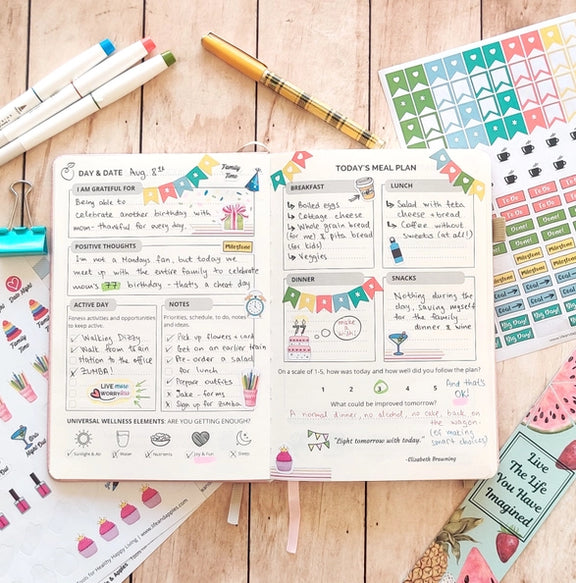 DAY & DATE Aug. 8th
Family
Time
I AM GRATEFUL FOR
Being able to
celebrate another birthday with
mom - thankful for every day.
POSITIVE THOUGHTS
Milestone
I'm not a Mondays fan, but today we
meet up with the entire family to celebrate
mom's 77 birthday - thats a cheat day
ACTIVE DAY
Fitness activities and opportunities
to keep active.
Walking Dizzy
Walk from train
station to the office
ZUMBA!
LIVE more
WORRY less
NOTES
Priorities, schedule, to do, notes
and ideas.
Pick up flowers + card
Get on an earlier train
Pre-order a salad
for lunch
Prepare outfits
Jake - forms
Sign up for zumba
UNIVERSAL WELLNESS ELEMENTS: ARE YOU GETTING ENOUGH?
Sunlight & Air
Water
Nutrients
Joy & Fun
Sleep
TODAY'S MEAL PLAN
BREAKFAST
Boiled eggs
Cottage cheese
Whole grain bread
(for me) & pita bread
(for kids)
Veggies
LUNCH
Salad with feta
cheese + bread.
Coffee without
sweets (at all!)
DINNER
77
make a
wish!
SNACKS
Nothing during the
day, saving myself
for the family
dinner & wine
On a scale of 1-5, how was today and how well did you follow the plan?
1 2 3 4 5
And that's
OK!
What could be improved tomorrow?
A normal dinner, no alcohol, no cake, back on
the wagon.
(of making
smart choices)
"Light tomorrow with today."
-Elizabeth Browning
To Do
To Do
To Do
Done!
Done!
Done!
Milestone
Milestone
Goal
Goal
Big Day!
Big Day!
Live
The Life
You Have
Imagined
Tools for Healthy Happy Living
www.lifeandapples.com